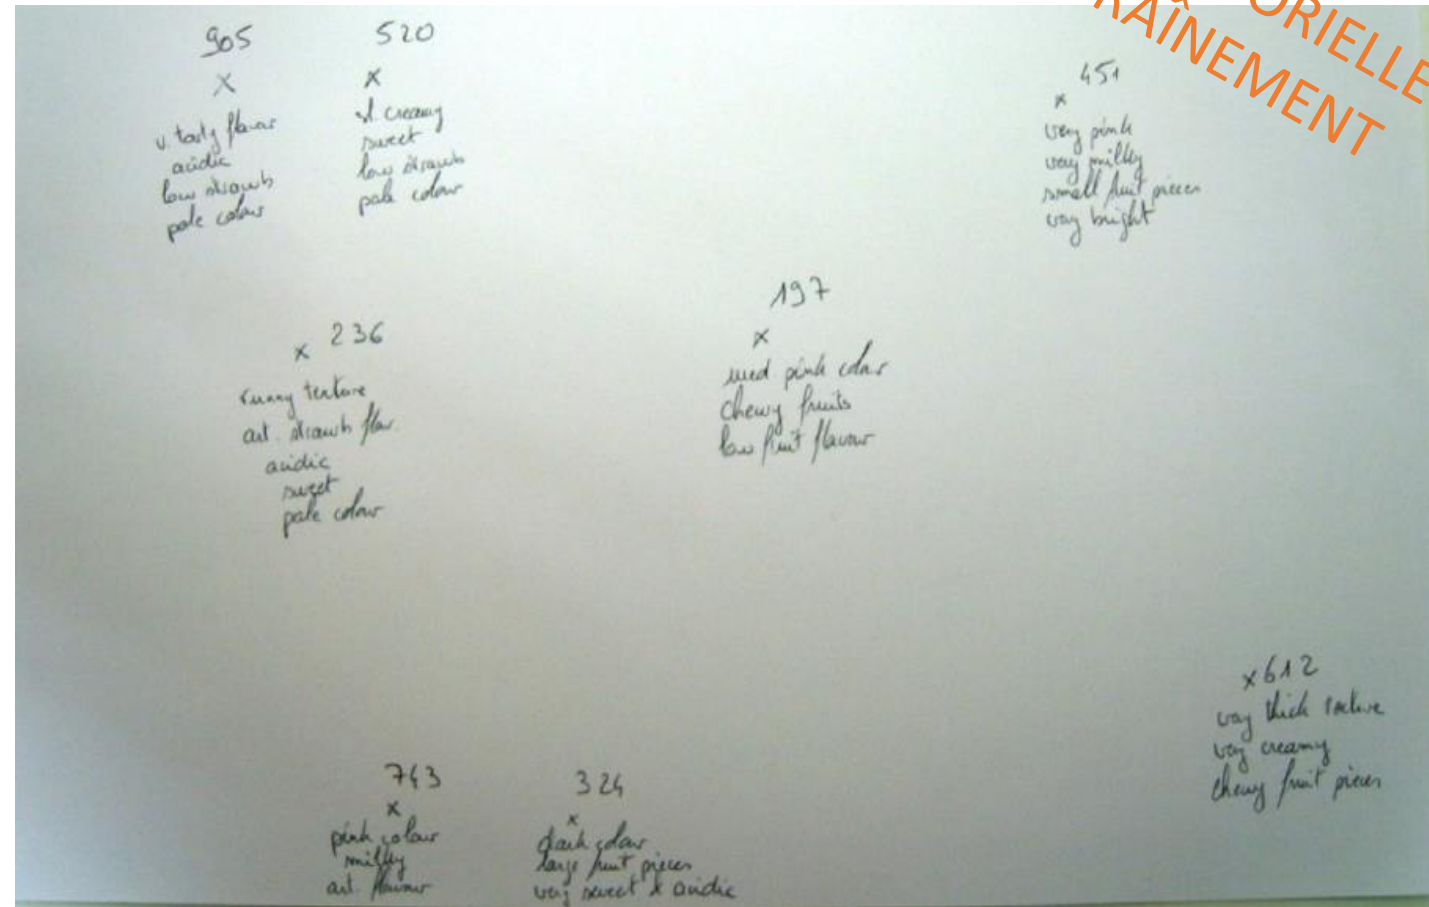 ORIELLE
RAÎNEMENT
905
x
v. tasty flavour
acidic
low strawb
pale colour
520
x
sl. creamy
sweet
low strawb
pale colour
451
x
very pink
very milky
small fruit pieces
very bright
x 236
runny texture
art. strawb flav.
acidic
sweet
pale colour
197
x
med pink colour
chewy fruits
low fruit flavour
x 612
very thick texture
very creamy
chewy fruit pieces
743
x
pink colour
milky
art. flavour
324
x
dark colour
large fruit pieces
very sweet & acidic